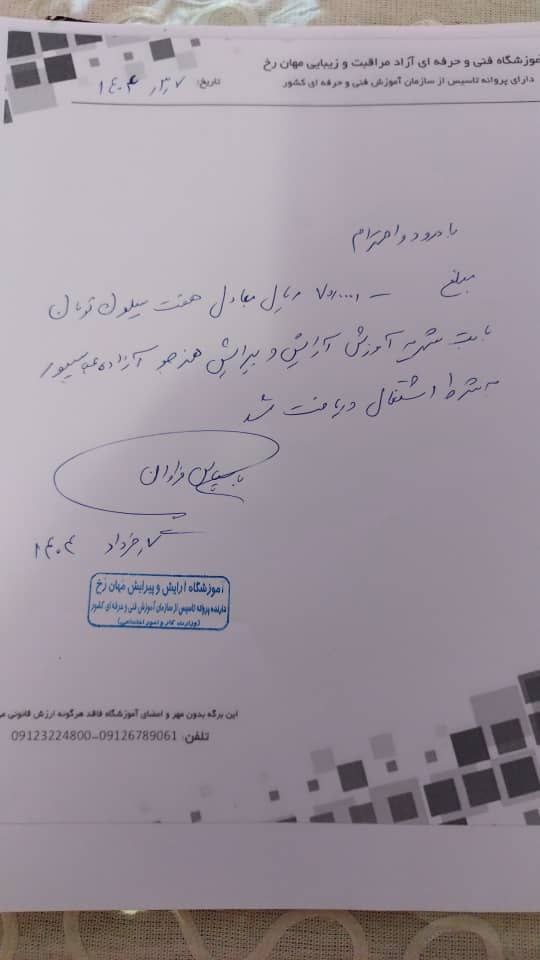 آموزشگاه فنی و حرفه ای آزاد مراقبت و زیبایی مهان رخ
دارای پروانه تاسیس از سازمان آموزش فنی و حرفه ای کشور
تاریخ: ۱۴۰۴
با درود و احترام
مبلغ ریال معادل هفت میلیون تومان
بابت شهریه آموزش آرایش و پیرایش هنرجو آزاده
به شرط اشتغال دریافت شد
با سپاس فراوان
خرداد ۱۴۰۴
آموزشگاه آرایش و پیرایش مهان رخ
دارنده پروانه تاسیس از سازمان آموزش فنی و حرفه ای کشور
(وزارت کار و امور اجتماعی)
این برگه بدون مهر و امضای آموزشگاه فاقد هرگونه ارزش قانونی می
تلفن: 09126789061-09123224800